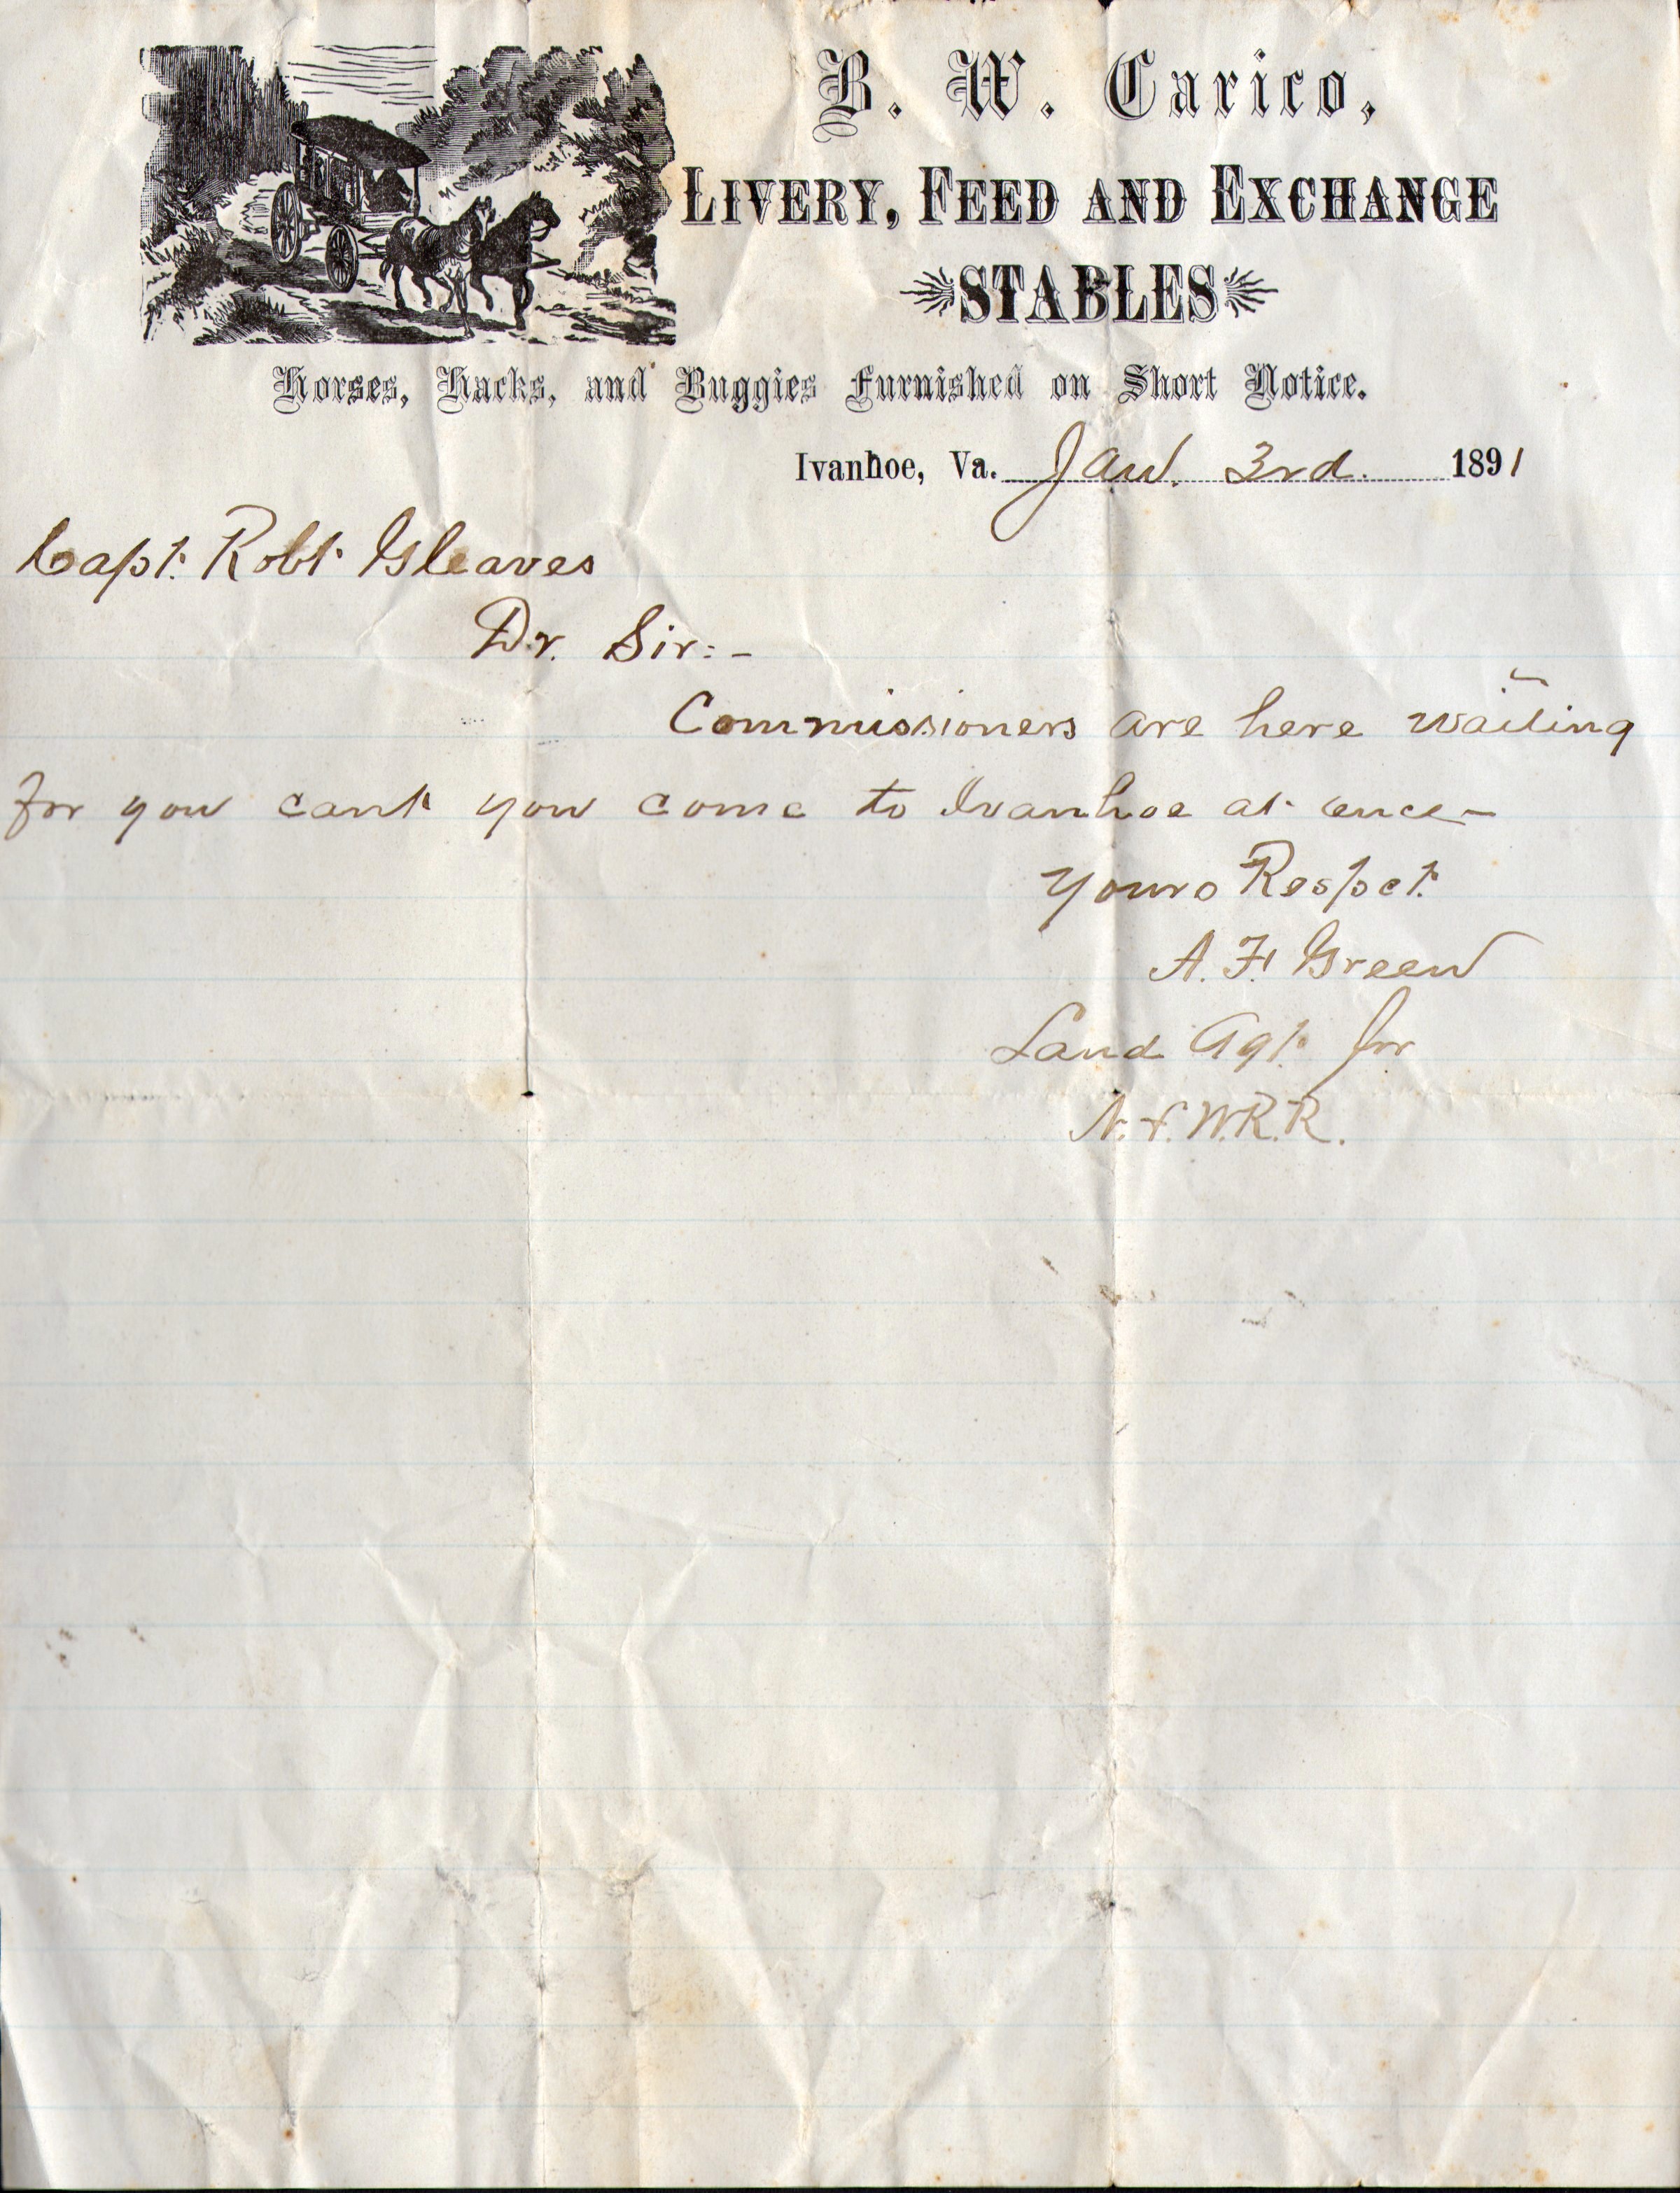 B. W. Carico,
LIVERY, FEED AND EXCHANGE
STABLES
Horses, Hacks, and Buggies Furnished on Short Notice.
Ivanhoe, Va. Jan. 3rd. 1891
Capt. Robt Gleaves
Dr. Sir:-
Commissioners are here waiting
for you cant you come to Ivanhoe at once-
Yours Respct.
A. F. Green
Land Agt. for
N. & W.R.R.